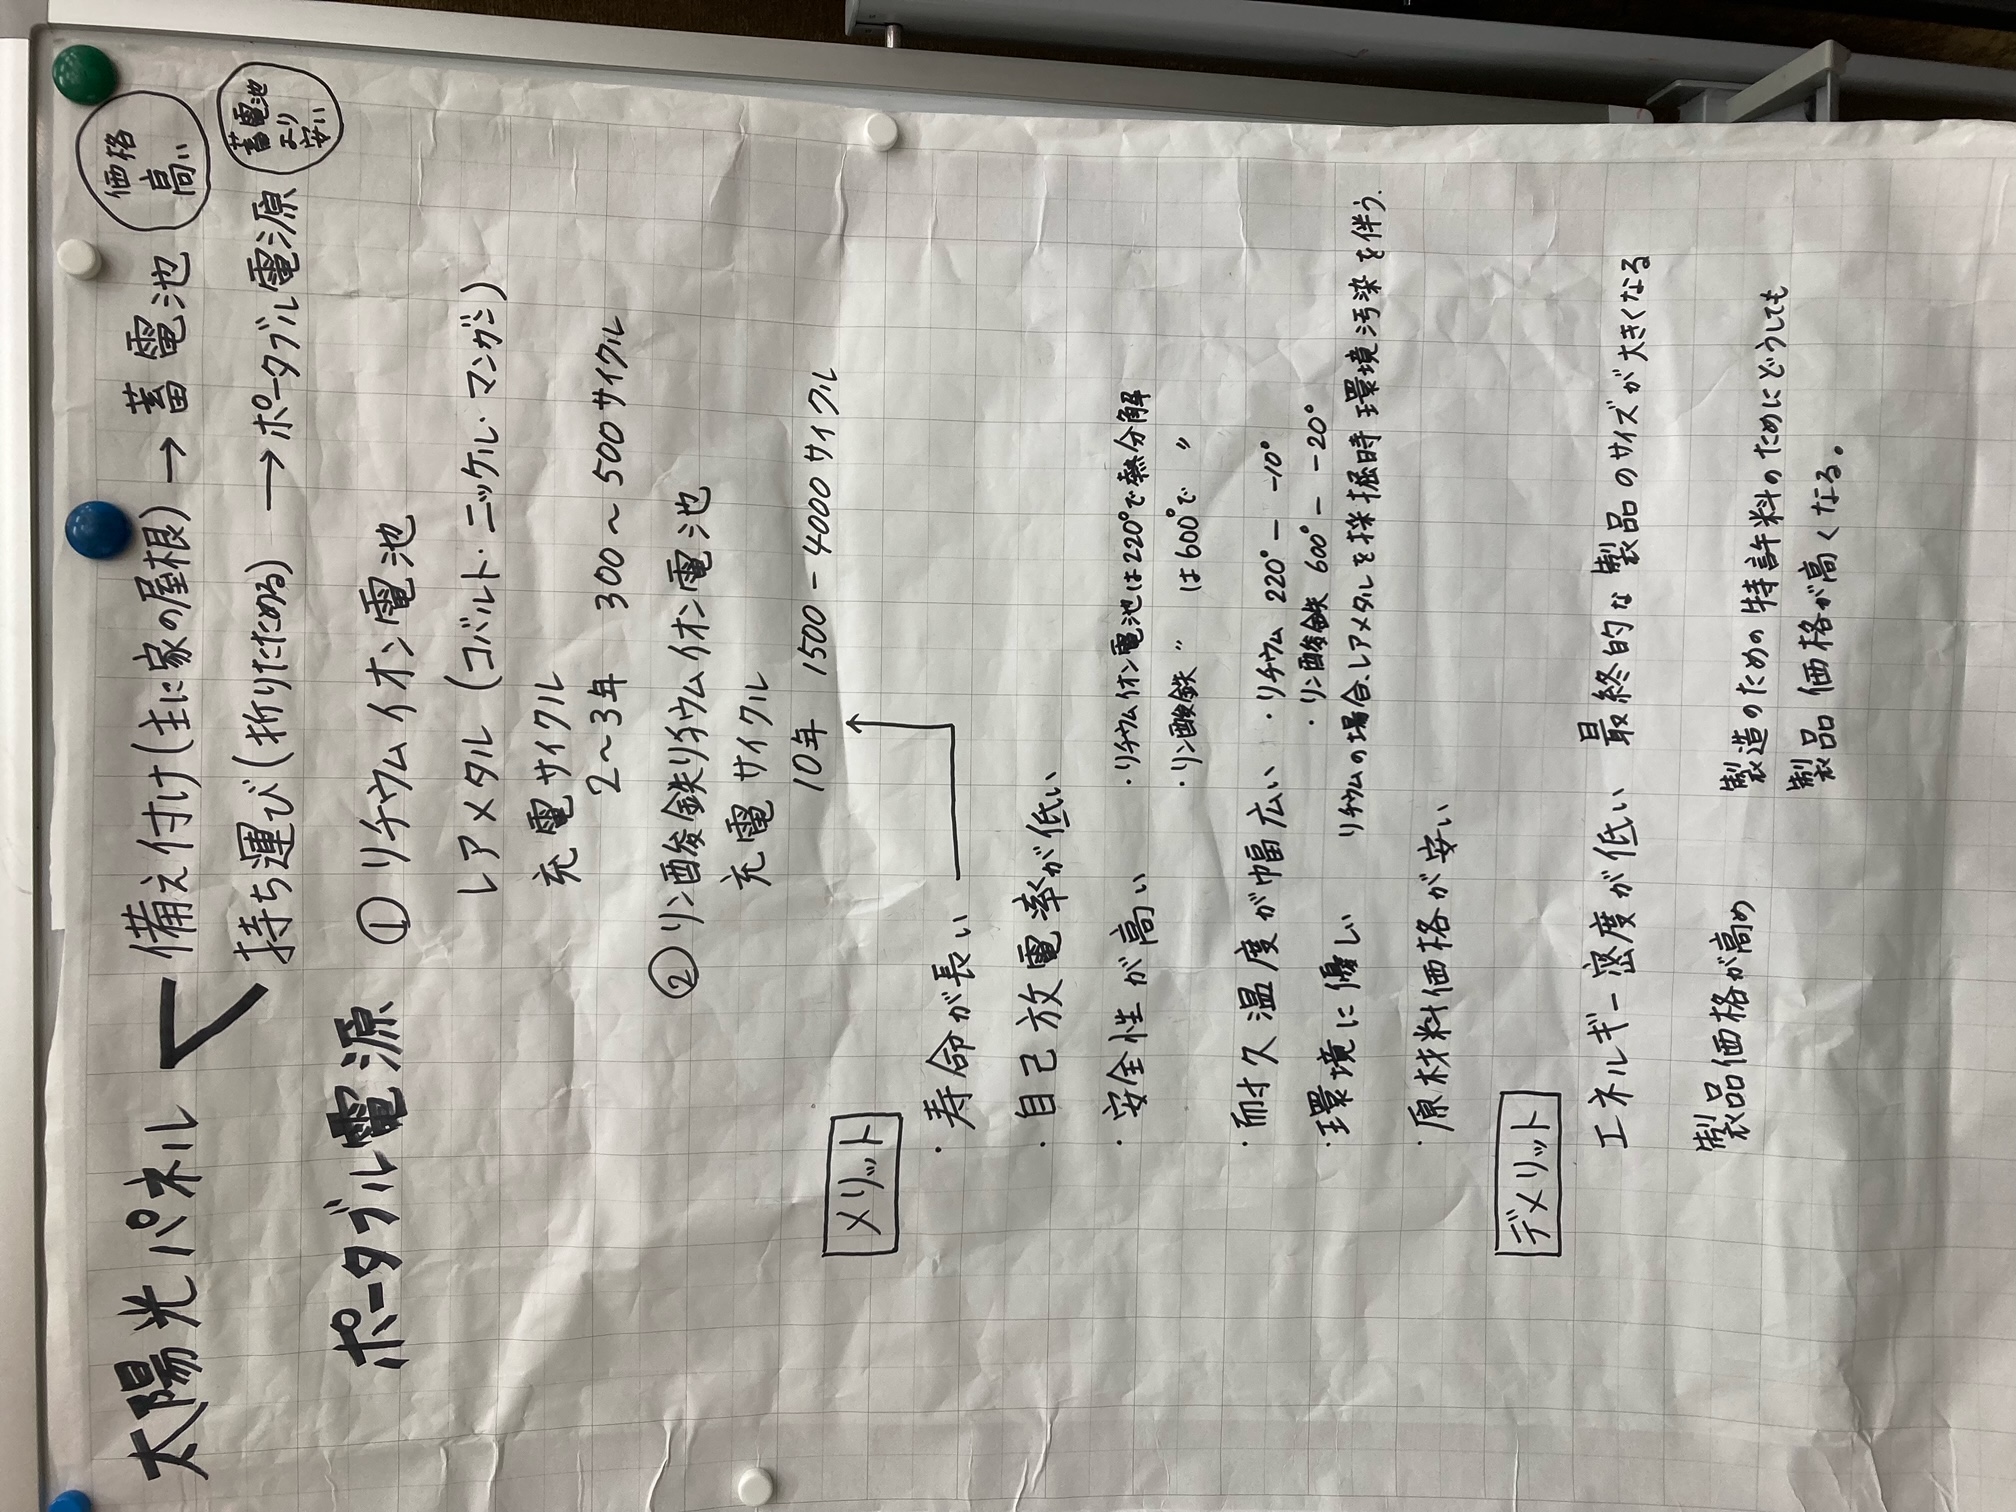 太陽光パネル
備え付け(主に家の屋根) → 蓄電池
価格
高い
持ち運び(折りたためる) → ポータブル電源
蓄電池
より
安い
ポータブル電源
① リチウムイオン電池
レアメタル (コバルト・ニッケル・マンガン)
充電サイクル
2〜3年 300〜500サイクル
② リン酸鉄リチウムイオン電池
充電サイクル
10年 1500-4000サイクル
メリット
・寿命が長い
・自己放電率が低い
・安全性が高い ・リチウムイオン電池は220°で熱分解
・リン酸鉄 〃 は600°で 〃
・耐久温度が幅広い ・リチウム 220° - -10°
・リン酸鉄 600° - -20°
・環境に優しい リチウムの場合、レアメタルを採掘時環境汚染を伴う.
・原材料価格が安い
デメリット
エネルギー密度が低い 最終的な製品のサイズが大きくなる
製品価格が高め 製造のための特許料のためにどうしても
製品価格が高くなる。